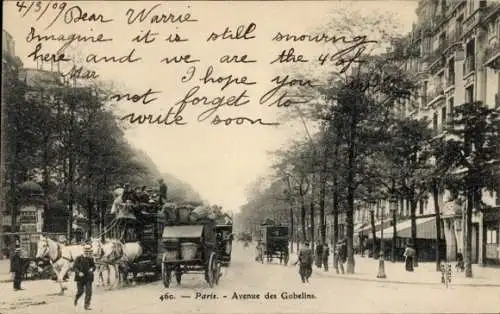 4/3/09 Dear Warrie
Imagine it is still snowing
here and we are the 4 of
Mar I hope you
not forget to
write soon
460. — Paris. - Avenue des Gobelins.